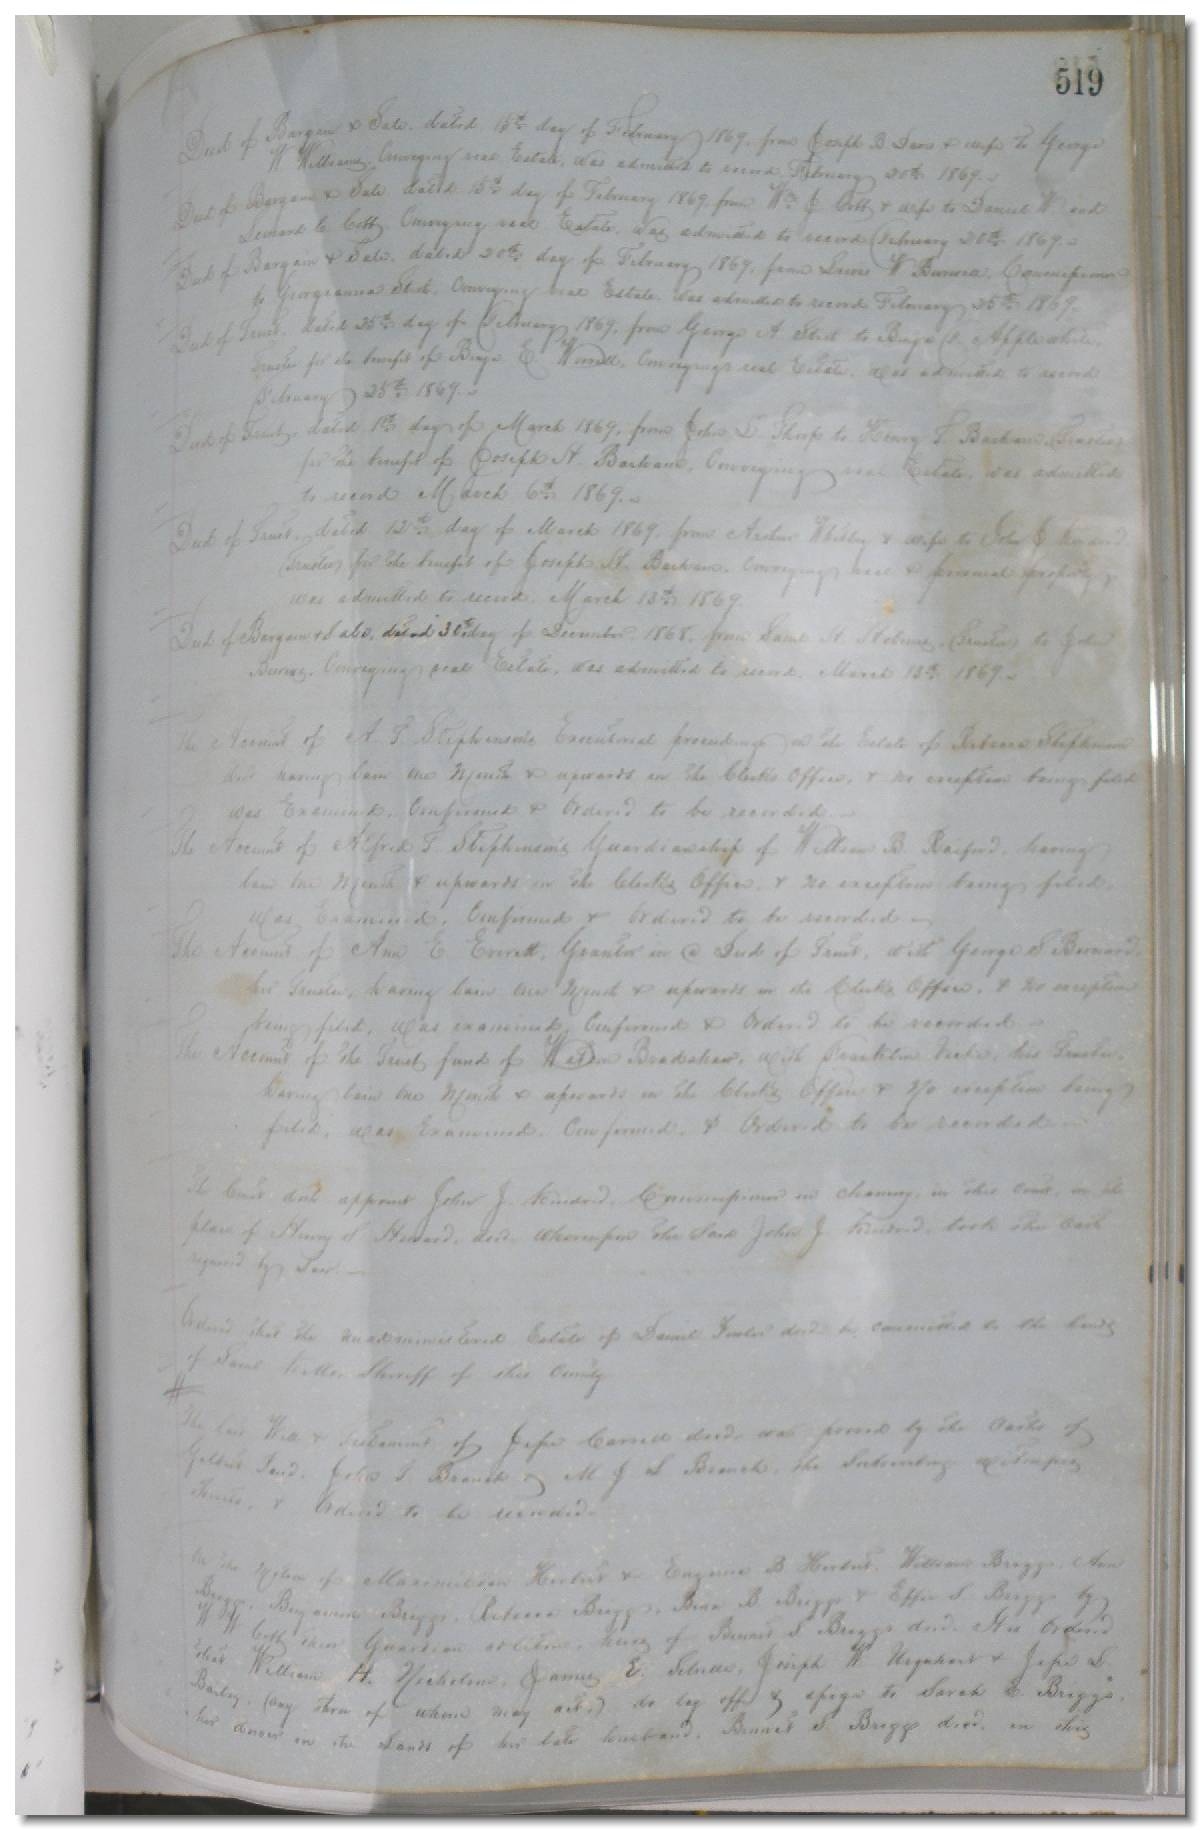 519
Deed of Bargain & Sale, dated 15th day of February 1869, from Joseph B Davis & wife to George
W Williams, Conveying real Estate, was admitted to record February 20th 1869.
Deed of Bargain & Sale, dated 15th day of February 1869, from Wm J Cobb & wife to Daniel W and
Cobb, Conveying real Estate, was admitted to record February 20th 1869.
Deed of Bargain & Sale, dated 20th day of February 1869, from Lewis W Commissioner
to Georgeanna Conveying real Estate, was admitted to record February 25th 1869.
Deed of Trust, dated 25th day of February 1869, from George A. to Benja Applewhite,
Trustee for the benefit of Benja E. Worrell, Conveying real Estate, was admitted to record
February 25th 1869.
Deed of Trust, dated 1st day of March 1869, from John to Henry T. Barham (Trustee)
for the benefit of Joseph H. Barham, Conveying real Estate, was admitted
to record March 6th 1869.
Deed of Trust, dated 12th day of March 1869, from Arthur Whitley & wife to John J Kindred
(Trustee) for the benefit of Joseph H. Barham, Conveying real & personal property,
was admitted to record, March 13th 1869.
Deed of Bargain & Sale, dated 30th day of December 1868, from Saml (Trustee) to John
Conveying real Estate, was admitted to record, March 13th 1869.
The Account of A. T Stephenson's Executorial proceedings on the Estate of Rebecca Stephenson
decd having lain one Month & upwards in the Clerk's Office, & no exception being filed
was Examined, Confirmed & Ordered to be recorded.
The Account of Alfred T. Stephenson's Guardianship of William B. Raiford, having
lain one Month & upwards in the Clerk's Office, & no exception being filed,
was Examined, Confirmed & Ordered to be recorded
The Account of Ann E. Everett, Grantor in a Deed of Trust, with George S Bernard,
her Trustee, having lain one Month & upwards in the Clerk's Office, & no exception
being filed, was examined, Confirmed & Ordered to be recorded
The Account of the Trust fund of Bradshaw, with Franklin his Trustee,
having lain one Month & upwards in the Clerk's Office & No exception being
filed, was Examined, Confirmed, & Ordered to be recorded
The Court doth appoint John J. Kindred, Commissioner in chancery, in this court, in the
place of Henry S Howard, decd. whereupon the said John J. Kindred, took the oath
required by Law.
Ordered that the unadministered Estate of Daniel decd be committed to the hands
of Saml Sheriff of this County
The last Will & Testament of Jesse decd. was proved by the oaths of
Gilbert John T Branch & M J L Branch, the subscribing witnesses
thereto, & Ordered to be recorded.
On the Motion of Maximilian & Eugenia B William Briggs, Ann
Briggs, Benjamin Briggs, Rebecca Briggs, B Briggs & Effie S. Briggs by
W W Cobb their Guardian ad litem, heirs of Bennet S Briggs decd. It is Ordered
that William H. Nicholson, James E. Joseph W. Urquhart & Jesse S.
Barley, (any three of whom may act,) do lay off & assign to Sarah E. Briggs,
her dower in the Lands of her late husband, Bennet S. Briggs decd. in this